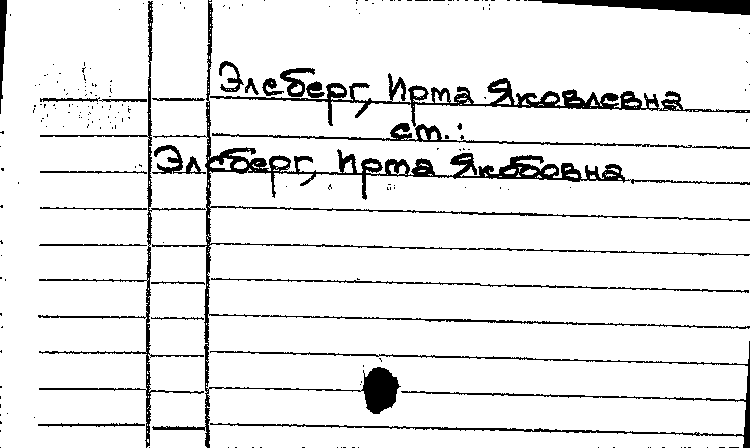 Элсберг, Ирма Яковлевна
ст.:
Элсберг, Ирма Якобовна